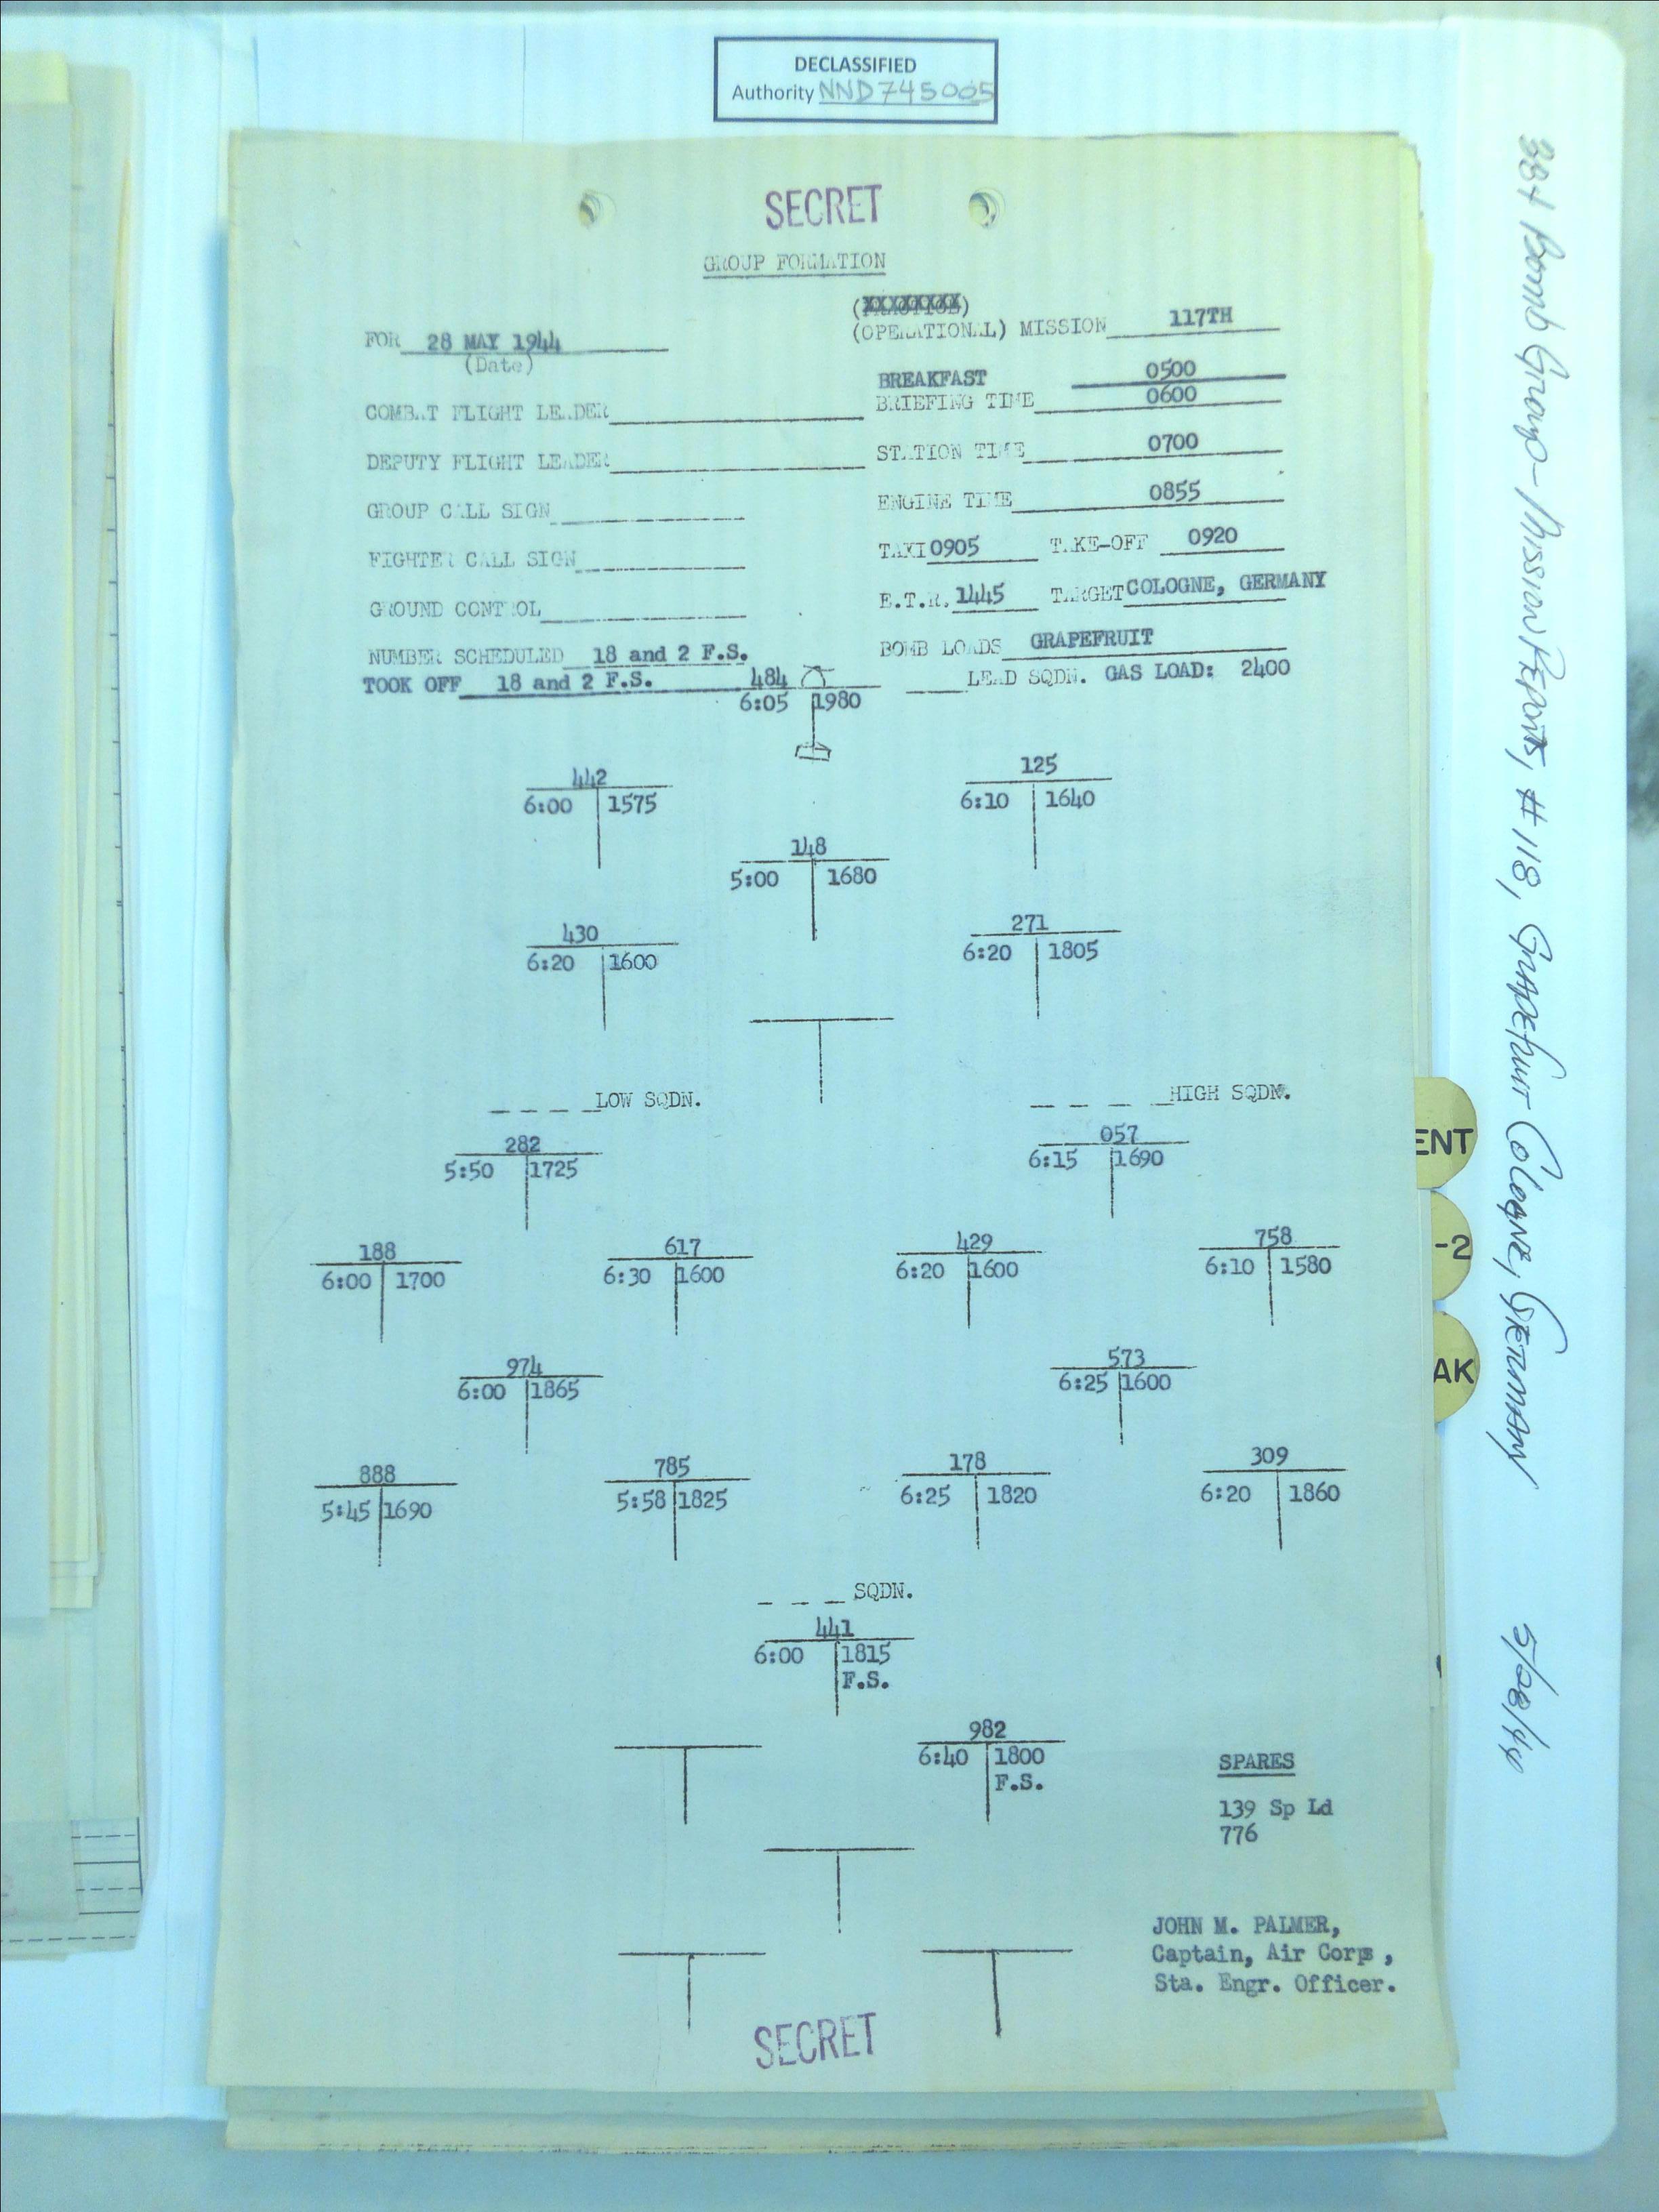 DECLASSIFIED
Authority NND745005
SECRET
GROUP FORMATION
(XXXXXXXX)
FOR 28 MAY 1944
(OPERATIONAL) MISSION 117TH
(Date)
BREAKFAST 0500
COMBAT FLIGHT LEADER
BRIEFING TIME 0600
DEPUTY FLIGHT LEADER
STATION TIME 0700
GROUP CALL SIGN
ENGINE TIME 0855
FIGHTER CALL SIGN
TAXI 0905 TAKE-OFF 0920
GROUND CONTROL
E.T.R. 1445 TARGET COLOGNE, GERMANY
NUMBER SCHEDULED 18 and 2 F.S.
BOMB LOADS GRAPEFRUIT
TOOK OFF 18 and 2 F.S.
LEAD SQDN. GAS LOAD: 2400
484
6:05 1980
442
6:00 1575
125
6:10 1640
148
5:00 1680
430
6:20 1600
271
6:20 1805
LOW SQDN.
HIGH SQDN.
282
5:50 1725
057
6:15 1690
188
6:00 1700
617
6:30 1600
429
6:20 1600
758
6:10 1580
974
6:00 1865
573
6:25 1600
888
5:45 1690
785
5:58 1825
178
6:25 1820
309
6:20 1860
SQDN.
441
6:00 1815
F.S.
982
6:40 1800
F.S.
SPARES
139 Sp Ld
776
JOHN M. PALMER,
Captain, Air Corps,
Sta. Engr. Officer.
SECRET
ENT
-2
AK
Bomb Group - Mission Reports, #118, Grapefruit Cologne, Germany 5/28/44